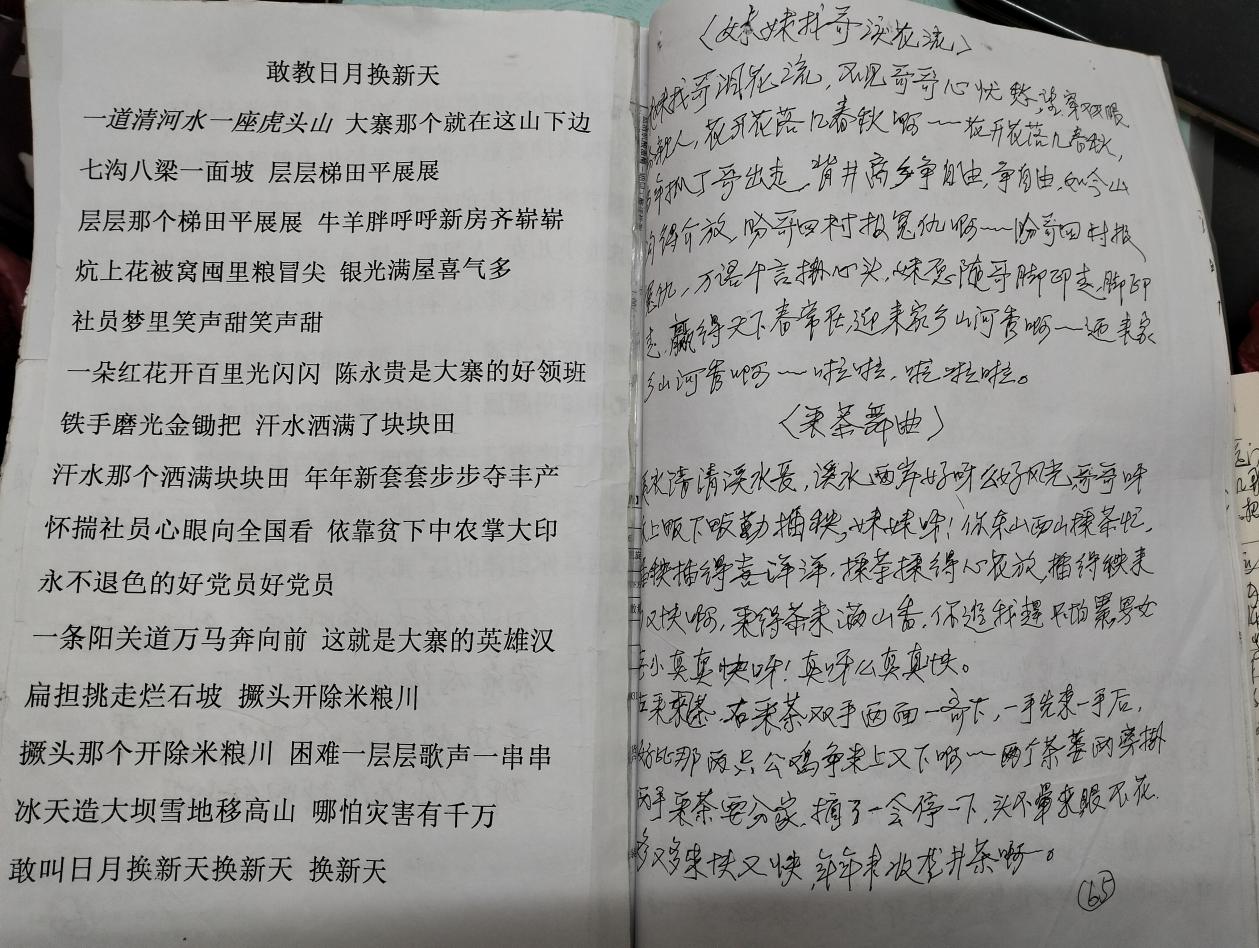 敢教日月换新天
一道清河水一座虎头山 大寨那个就在这山下边
七沟八梁一面坡 层层梯田平展展
层层那个梯田平展展 牛羊胖呼呼新房齐崭崭
炕上花被窝囤里粮冒尖 银光满屋喜气多
社员梦里笑声甜笑声甜
一朵红花开百里光闪闪 陈永贵是大寨的好领班
铁手磨光金锄把 汗水洒满了块块田
汗水那个洒满块块田 年年新套套步步夺丰产
怀揣社员心眼向全国看 依靠贫下中农掌大印
永不退色的好党员好党员
一条阳关道万马奔向前 这就是大寨的英雄汉
扁担挑走烂石坡 撅头开除米粮川
撅头那个开除米粮川 困难一层层歌声一串串
冰天造大坝雪地移高山 哪怕灾害有千万
敢叫日月换新天换新天 换新天
〈妹妹找哥泪花流〉
妹找哥泪花流，不见哥哥心忧愁，望穿双眼
亲人，花开花落几春秋啊~~花开花落几春秋，
年抓丁哥出走，背井离乡争自由，争自由，如今山
得介放，盼哥回村报冤仇啊~~盼哥回村报
冤仇，万语千言挂心头，妹愿随哥脚印走，脚印
走，赢得天下春常在，迎来家乡山河秀啊~~迎来家
乡山河秀啊~~啦啦，啦啦啦。
〈采茶舞曲〉
溪水清清溪水长，溪水两岸好呀么好风光，哥哥呀
上畈下畈勤插秧，妹妹呀！你东山西山採茶忙，
插秧插得喜洋洋，採茶採得心花放，插得秧来
又快啊，采得茶来满山香，你追我赶不怕累，男女
老小真真快呀！真呀么真真快。
左采茶，右采茶双手两面一齐下，一手先来一手后，
好比那两只公鸡争来上又下啊~~两个茶蒌两旁掛
两手采茶要分家，摘了一会停一下，头不晕来眼不花，
多又多来快又快，年年来收龙井茶啊~。
65